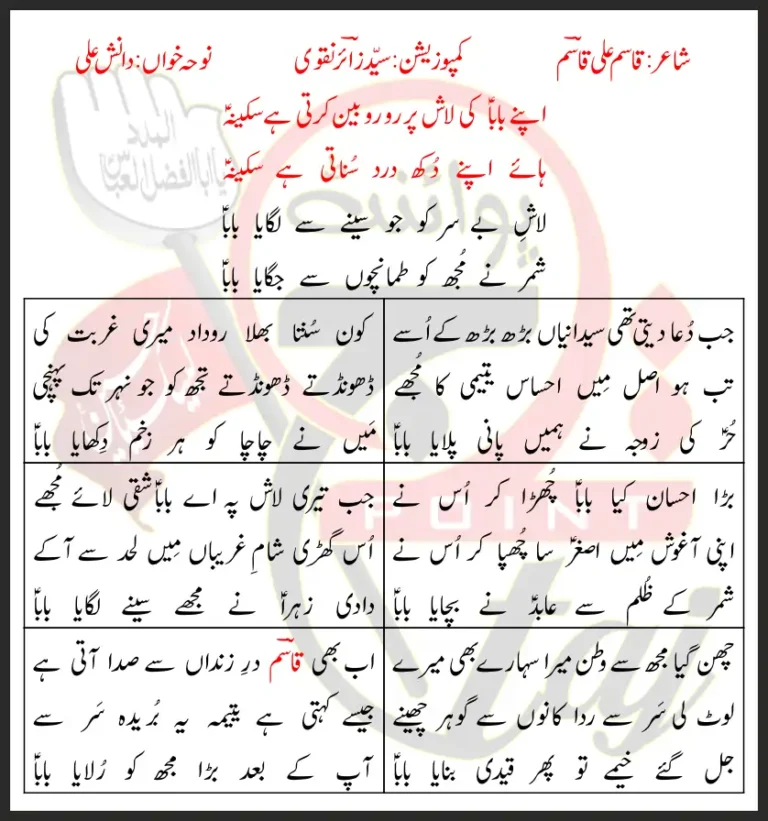 شاعر: قاسم علی قاسمؔ کمپوزیشن: سیّد زائرؔ نقوی نوحہ خواں: دانش علی
اپنے باباؑ کی لاش پر رو رو بین کرتی ہے سکینہؑ
ہائے اپنے دُکھ درد سُناتی ہے سکینہؑ
لاشِ بے سر کو جو سینے سے لگایا باباؑ
شمر نے مُجھ کو طمانچوں سے جگایا باباؑ
جب دُعا دیتی تھی سیدانیاں بڑھ بڑھ کے اُسے
تب ہو اصل مِیں احساس یتیمی کا مُجھے
حُرؑ کی زوجہ نے ہمیں پانی پلایا باباؑ
کون سُنتا بھلا روداد میری غربت کی
ڈھونڈتے ڈھونڈتے تجھ کو جو نہر تک پہنچی
مَیں نے چاچا کو ہر زخم دِکھایا باباؑ
بڑا احسان کیا باباؑ چُھڑا کر اُس نے
اپنی آغوش مِیں اصغرؑ سا چُھپا کر اُس نے
شمر کے ظُلم سے عابدؑ نے بچایا باباؑ
جب تیری لاش پہ اے باباؑ شقی لائے مُجھے
اُس گھڑی شامِ غریباں مِیں لحد سے آکے
دادی زہراؑ نے مجھے سینے لگایا باباؑ
چھن گیا مجھ سے وطن میرا سہارے بھی میرے
لوٹ لی سَر سے ردا کانوں سے گوہر چھینے
جل گئے خیمے تو پھر قیدی بنایا باباؑ
اب بھی قاسمؔ درِ زنداں سے صدا آتی ہے
جیسے کہتی ہے یتیمہ یہ بُریدہ سَر سے
آپ کے بعد بڑا مجھ کو رُلایا باباؑ
المدد
یا ابا الفضل العباسؑ
پوائنٹ
POINT
taj